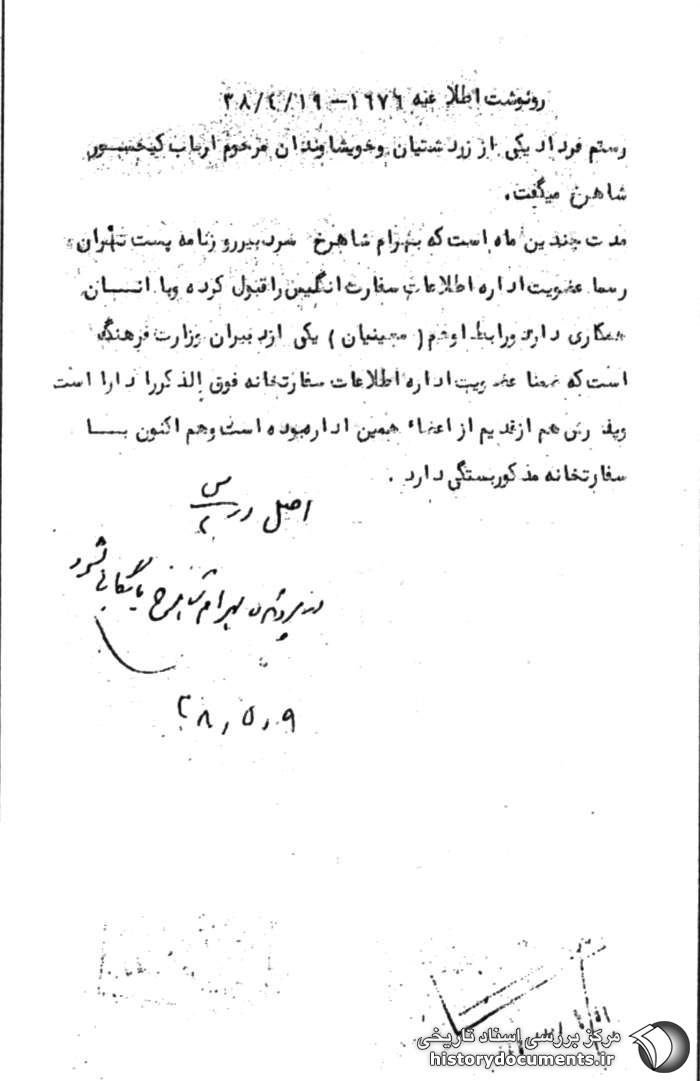 رونوشت اطلاعیه ۱۶۷۶ – ۳۸/٤/۱۹
رستم فرداد یکی از زردشتیان و خویشاوندان مرحوم ارباب کیخسرو
شاهرخ میگفت.
مدت چندین ماه است که بهرام شاهرخ سردبیر روزنامه پست تهران
رسما عضویت اداره اطلاعات سفارت انگلیس را قبول کرده و با انسان
همکاری دارد و رابط او هم (معینیان) یکی از دبیران وزارت فرهنگ
است که ضمنا عضویت اداره اطلاعات سفارتخانه فوق الذکر را دارا است
و پدرش هم از قدیم از اعضاء همین اداره بوده است و هم اکنون بـــا
سفارتخانه مذکور بستگی دارد.
اصل در س/۲
در پرونده بهرام شاهرخ بایگانی شود
۳۸٫۵٫۹
مرکز بررسی اسناد تاریخی
historydocuments.ir